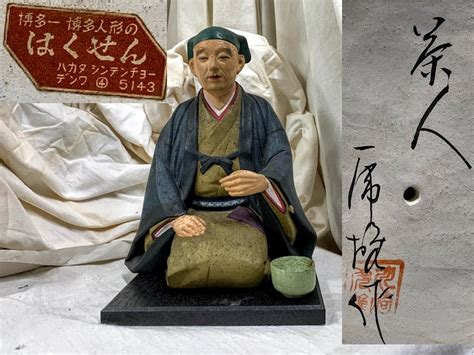 博多一 博多人形の
はくせん
ハカタ シンテンチョー
デンワ ④ 5143
茶人